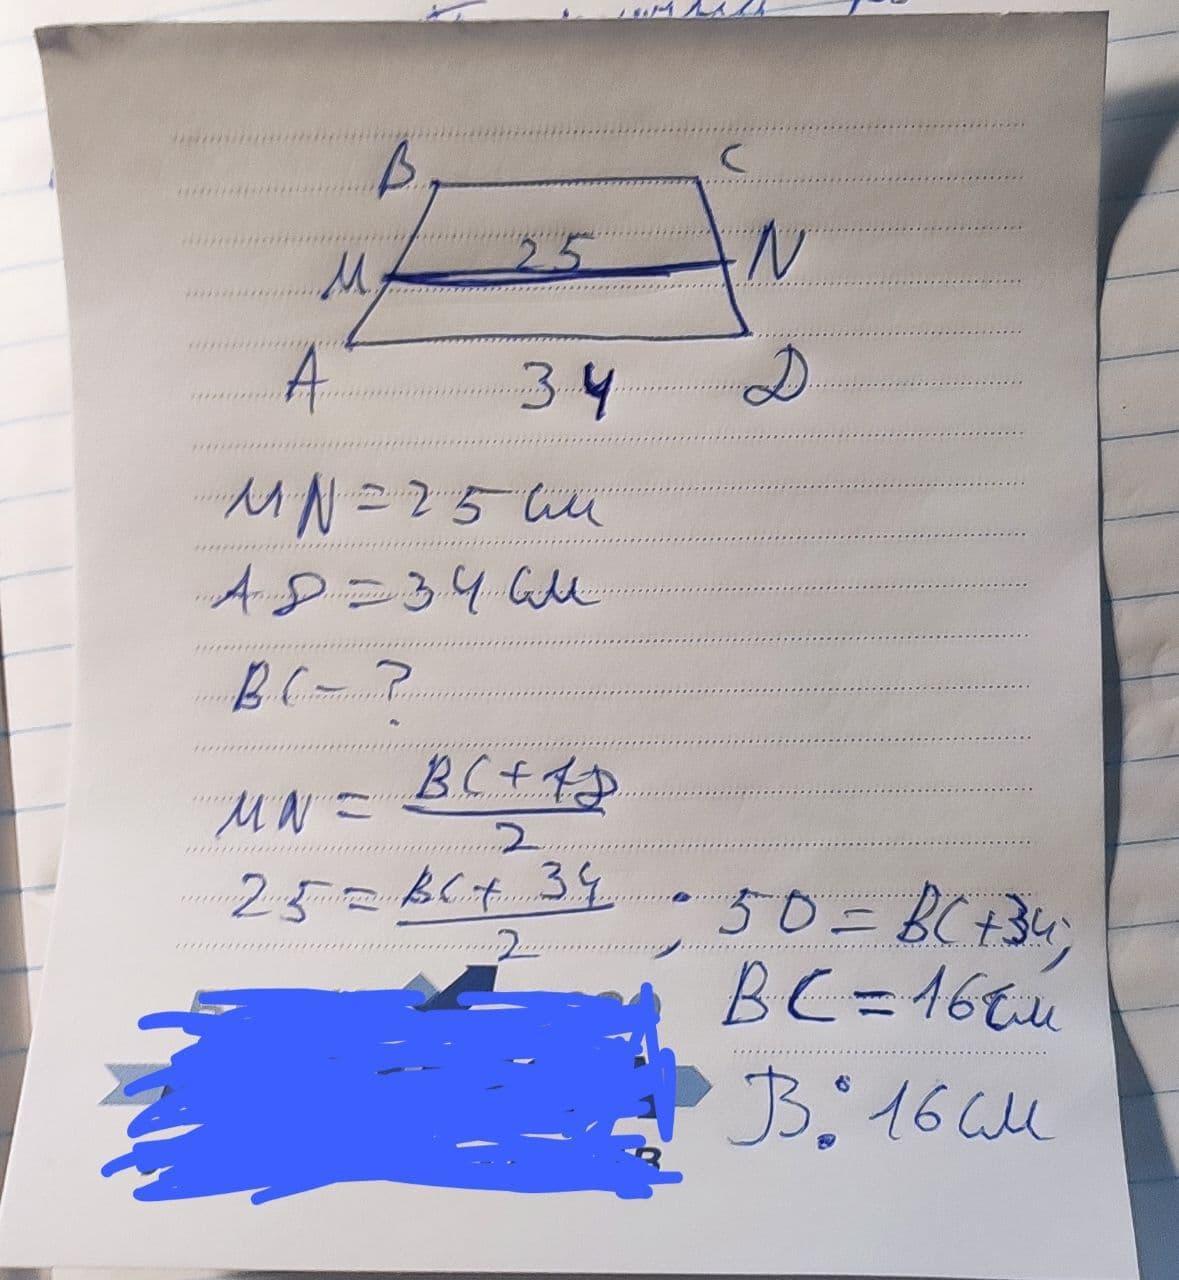 B C
25
M N
A 34 D
MN = 25 см
AD = 34 см
BC - ?
MN = (BC + AD) / 2
25 = (BC + 34) / 2 ; 50 = BC + 34;
BC = 16 см
В: 16 см